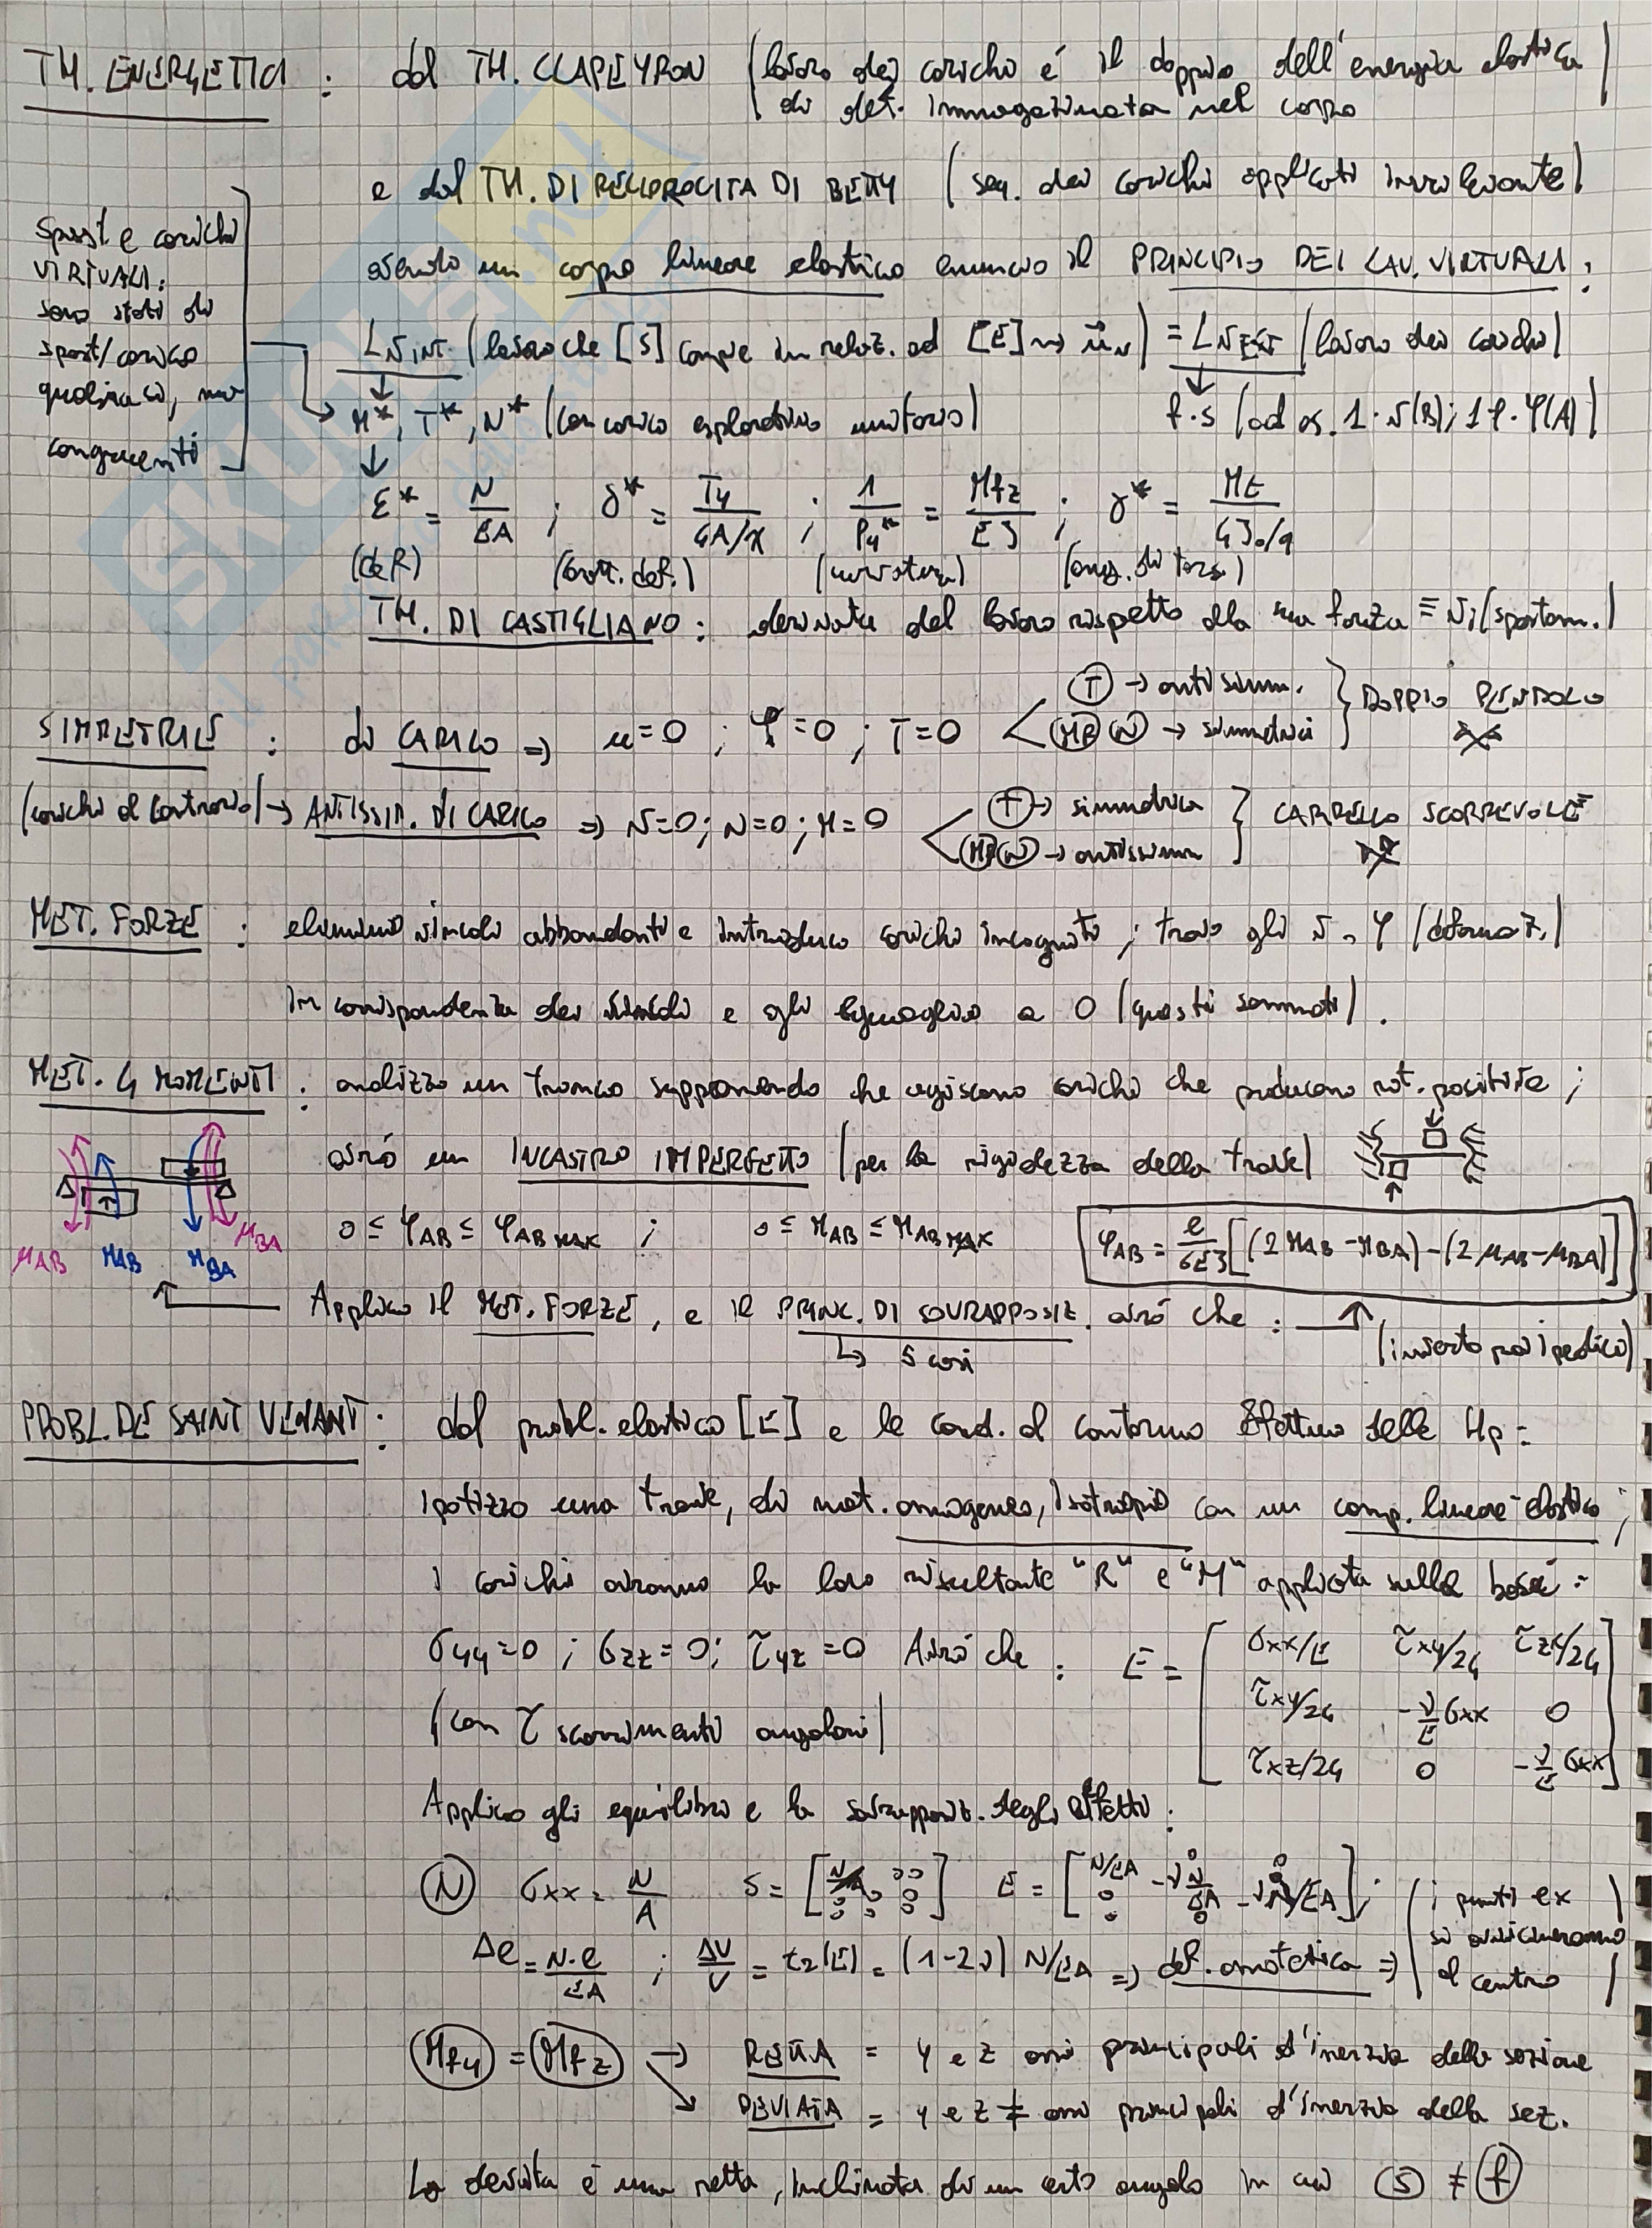 TH. ENERGETICI : dal TH. CLAPEYRON (lavoro dei carichi é il doppio dell'energia elastica
di def. immagazzinata nel corpo
e dal TH. DI RECIPROCITA DI BETTY (seq. dei carichi applicati irrilevante)
spost e carichi
VIRTUALI:
sono stati di
spost/carico
qualsiasi, ma
congruenti
avendo un corpo lineare elastico enuncio il PRINCIPIO DEI LAV. VIRTUALI :
LV INT. (lavoro che [S] compie in relaz. ad [E] → u) = LV EST (lavoro dei carichi)
M*, T*, N* (con carico esplorativo unitario) f·s (ad es. 1·v(B); 1·φ(A)
ε* = N/EA ; δ* = Ty/GA/χ ; 1/ρy* = Mfz/EJ ; γ* = Mt/GJo/q
(def) (scott. def.) (curvatura) (ang. di tors.)
TH. DI CASTIGLIANO : derivata del lavoro rispetto alla sua forza = vi (spostam.)
SIMMETRIE : di CARICO => u=0 ; φ=0 ; T=0 < (T) → antisimm. } DOPPIO PENDOLO
(Mf)(N) → simmetrici
(carichi al contrario) → ANTISSIM. DI CARICO => v=0 ; N=0 ; M=0 < (T) → simmetrica } CARRELLO SCORREVOLE
(Mf)(N) → antissimm
MET. FORZE : elimino vincoli abbondanti e introduco carichi incogniti ; trovo gli v, φ (deformaz.)
in corrispondenza dei vincoli e gli eguaglio a 0 (questi sommati).
MET. 4 MOMENTI : analizzo un tronco supponendo che agiscano carichi che producono rot. positive ;
avró un INCASTRO IMPERFETTO (per la rigidezza della trave)
0 ≤ φAB ≤ φAB MAX ; 0 ≤ MAB ≤ MAB MAX
φAB = l/6EJ [(2MAB - MBA) - (2μAB - μBA)]
μAB MAB MBA μBA
Applico il MET. FORZE, e il PRINC. DI SOVRAPPOSIZ. avró che : → (inverto poi i pedici)
↳ 5 casi
PROBL. DE SAINT VENANT : dal probl. elastico [E] e le cond. al contorno Effettuo delle Hp :
ipotizzo una trave, di mat. omogeneo, isotropio con un comp. lineare-elastico ;
i carichi avranno la loro risultante "R" e "M" applicata sulle basi :
σyy=0 ; σzz=0 ; τyz=0 Avró che : E = [ σxx/E τxy/2G τzx/2G
τxy/2G -ν/E σxx 0
τxz/2G 0 -ν/E σxx ]
(con τ scorrimenti angolari)
Applico gli equilibri e la sovrapposiz. degli effetti :
(N) σxx = N/A S = [ N/A 0 0 0 0 0 0 0 ] E = [ N/EA 0 0 0 -νN/EA 0 0 -νN/EA ] ; (i punti ex
si avvicineranno
al centro)
Δl = N·l/EA ; ΔV/V = tr(E) = (1-2ν) N/EA => def. omotetica =>
(Mfy) = (Mfz) → RETTA = y e z assi principali d'inerzia della sezione
DEVIATA = y e z ≠ assi principali d'inerzia della sez.
La deviata è una retta, inclinata di un certo angolo in cui (s) ≠ (f)